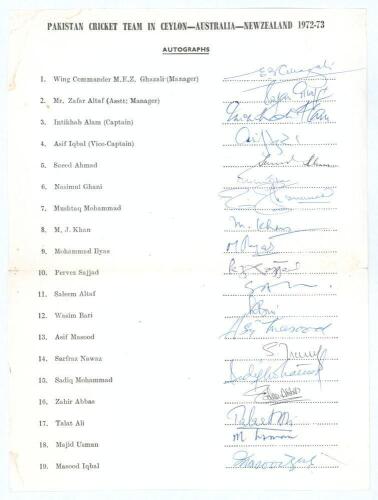 PAKISTAN CRICKET TEAM IN CEYLON—AUSTRALIA—NEWZEALAND 1972-73
AUTOGRAPHS
1. Wing Commander M.E.Z. Ghazali (Manager)
2. Mr. Zafar Altaf (Asstt; Manager)
3. Intikhab Alam (Captain) Intikhab Alam
4. Asif Iqbal (Vice-Captain)
5. Saeed Ahmad
6. Nasimul Ghani
7. Mushtaq Mohammad
8. M. J. Khan M. Khan
9. Mohammad Ilyas M Ilyas
10. Pervez Sajjad
11. Saleem Altaf
12. Wasim Bari
13. Asif Masood Asif Masood
14. Sarfraz Nawaz
15. Sadiq Mohammad
16. Zahir Abbas
17. Talat Ali Talat Ali
18. Majid Usman M Usman
19. Masood Iqbal